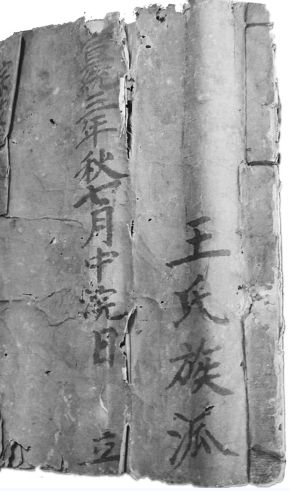 王氏族泒
宣統三年秋七月中浣日 立